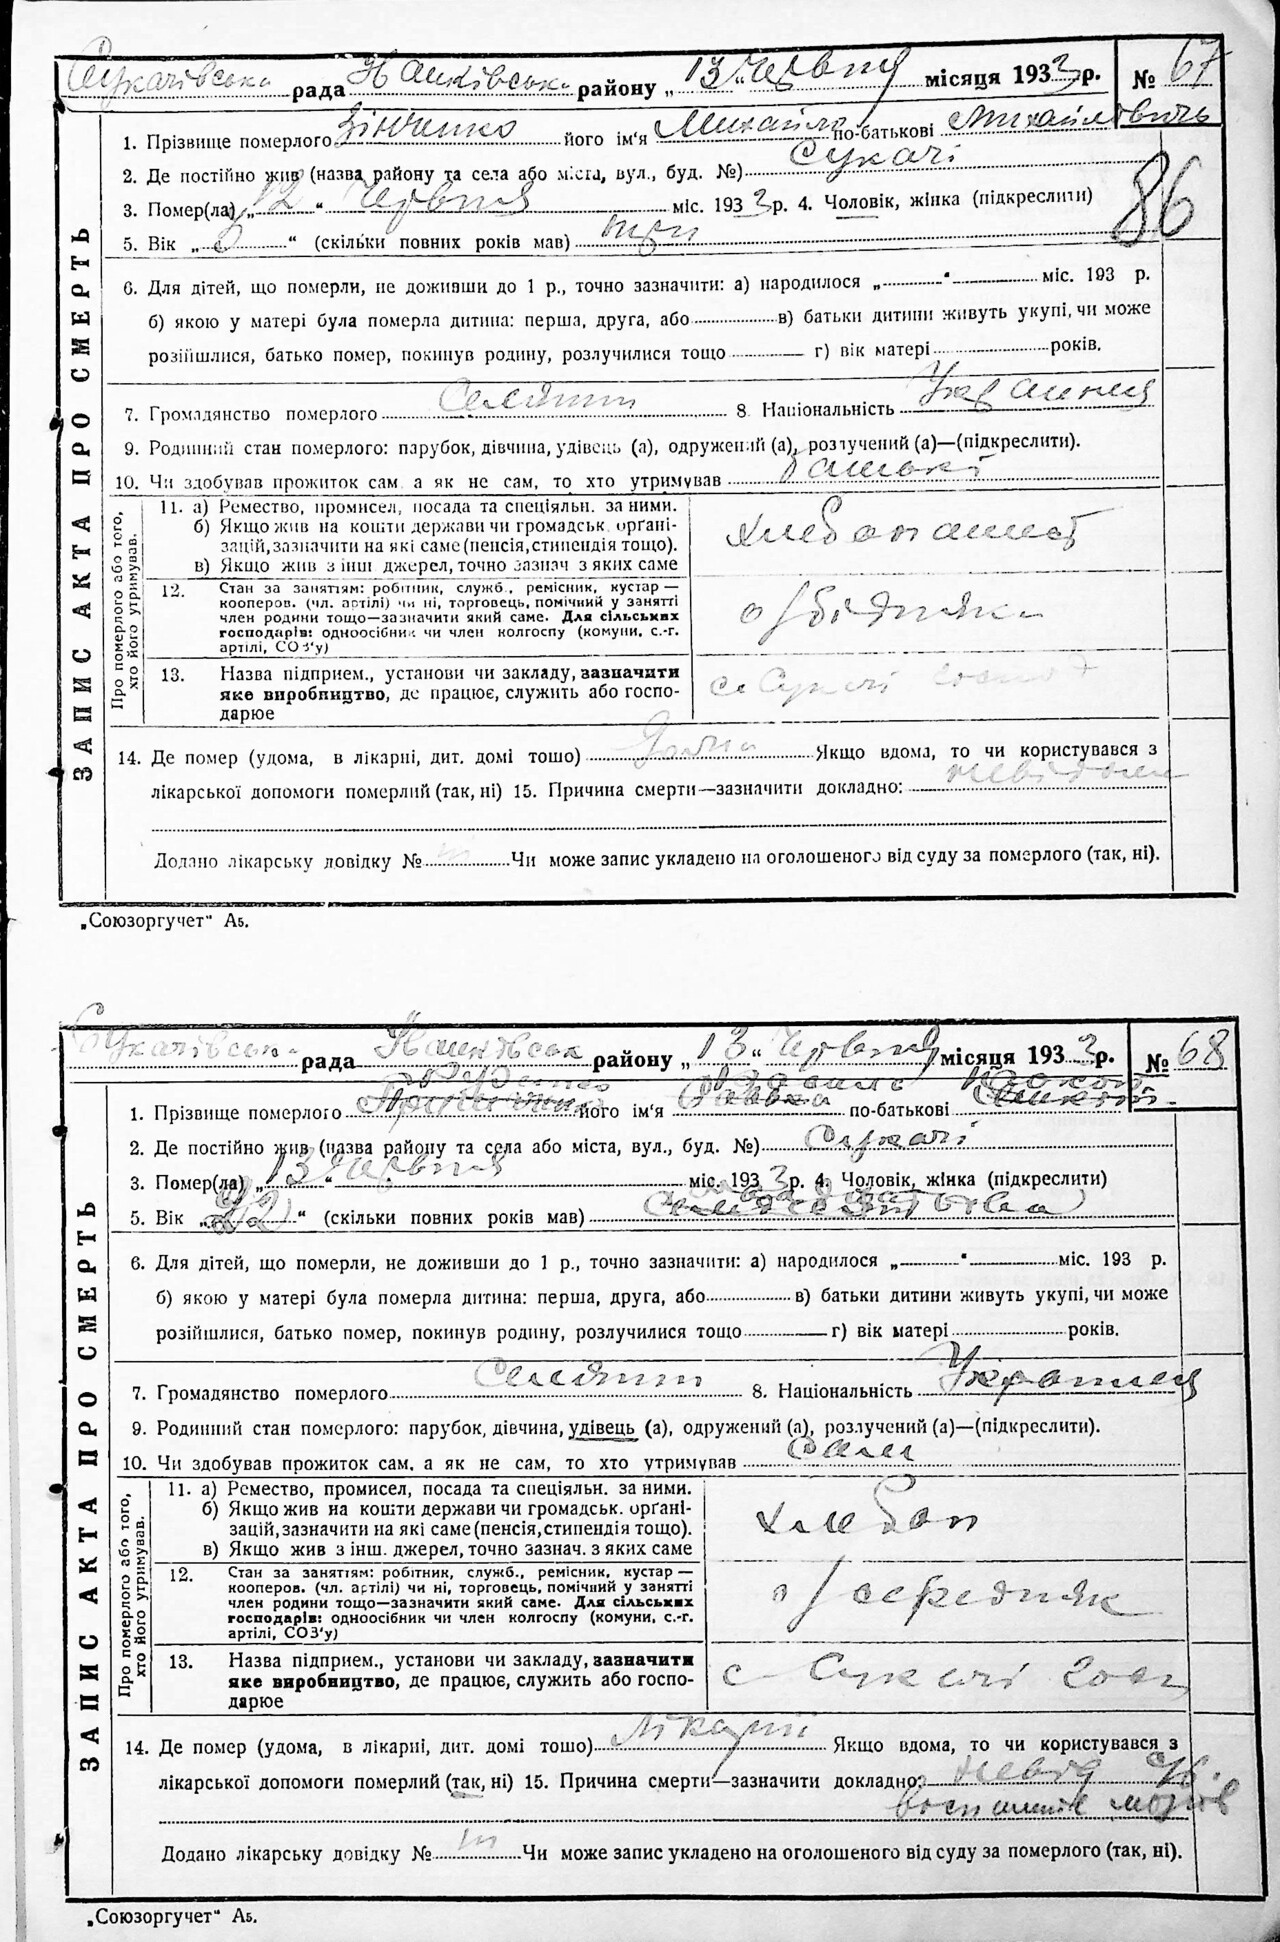 Сукачівська рада Іванківськ. району „13“ Червня місяця 1933 р. № 67
1. Прізвище померлого Зінченко його ім'я Михайло по-батькові Михайлович
2. Де постійно жив (назва району та села або міста, вул., буд. №) Сукачі
86
3. Помер(ла) „12“ Червня міс. 1933 р. 4. Чоловік, жінка (підкреслити)
5. Вік „3“ (скільки повних років мав) три
6. Для дітей, що померли, не доживши до 1 р., точно зазначити: а) народилося „ “ міс. 193 р.
б) якою у матері була померла дитина: перша, друга, або в) батьки дитини живуть укупі, чи може
розійшлися, батько помер, покинув родину, розлучилися тощо г) вік матері років.
7. Громадянство померлого Селянин 8. Національність Українец
9. Родинний стан померлого: парубок, дівчина, удівець (а), одружений (а), розлучений (а)—(підкреслити).
10. Чи здобував прожиток сам, а як не сам, то хто утримував батькі
Про померлого або того, хто його утримував.
11. а) Ремество, промисел, посада та спеціяльн. за ними.
б) Якщо жив на кошти держави чи громадськ. орґані-
зацій, зазначити на які саме (пенсія, стипендія тощо).
в) Якщо жив з інш. джерел, точно зазнач. з яких саме
12. Стан за заняттям: робітник, служб., ремісник, кустар—
кооперов. (чл. артілі) чи ні, торговець, помічний у занятті
член родини тощо—зазначити який саме. Для сільських
господарів: одноосібник чи член колгоспу (комуни, с.-г.
артілі, СОЗ'у)
о/бідняк
13. Назва підприєм., установи чи закладу, зазначити
яке виробництво, де працює, служить або госпо-
дарює
с. Сукачі
14. Де помер (удома, в лікарні, дит. домі тощо) Дома Якщо вдома, то чи користувався з
лікарської допомоги померлий (так, ні) 15. Причина смерти—зазначити докладно: невідома
Додано лікарську довідку № Чи може запис укладено на оголошеного від суду за померлого (так, ні).
ЗАПИС АКТА ПРО СМЕРТЬ
„Союзоргучет“ Аб.
Сукачівськ. рада Іванківськ. району „13“ Червня місяця 1933 р. № 68
1. Прізвище померлого його ім'я Василь по-батькові
2. Де постійно жив (назва району та села або міста, вул., буд. №) Сукачі
3. Помер(ла) „13“ Червня міс. 1933 р. 4. Чоловік, жінка (підкреслити)
5. Вік „ “ (скільки повних років мав)
6. Для дітей, що померли, не доживши до 1 р., точно зазначити: а) народилося „ “ міс. 193 р.
б) якою у матері була померла дитина: перша, друга, або в) батьки дитини живуть укупі, чи може
розійшлися, батько помер, покинув родину, розлучилися тощо г) вік матері років.
7. Громадянство померлого Селянин 8. Національність Українец
9. Родинний стан померлого: парубок, дівчина, удівець (а), одружений (а), розлучений (а)—(підкреслити).
10. Чи здобував прожиток сам, а як не сам, то хто утримував Сам
Про померлого або того, хто його утримував.
11. а) Ремество, промисел, посада та спеціяльн. за ними.
б) Якщо жив на кошти держави чи громадськ. орґані-
зацій, зазначити на які саме (пенсія, стипендія тощо).
в) Якщо жив з інш. джерел, точно зазнач. з яких саме
хлебоп
12. Стан за заняттям: робітник, служб., ремісник, кустар—
кооперов. (чл. артілі) чи ні, торговець, помічний у занятті
член родини тощо—зазначити який саме. Для сільських
господарів: одноосібник чи член колгоспу (комуни, с.-г.
артілі, СОЗ'у)
о/середняк
13. Назва підприєм., установи чи закладу, зазначити
яке виробництво, де працює, служить або госпо-
дарює
с. Сукачі госп
14. Де помер (удома, в лікарні, дит. домі тощо) Лікарні Якщо вдома, то чи користувався з
лікарської допомоги померлий (так, ні) 15. Причина смерти—зазначити докладно: невід
Додано лікарську довідку № Чи може запис укладено на оголошеного від суду за померлого (так, ні).
ЗАПИС АКТА ПРО СМЕРТЬ
„Союзоргучет“ Аб.